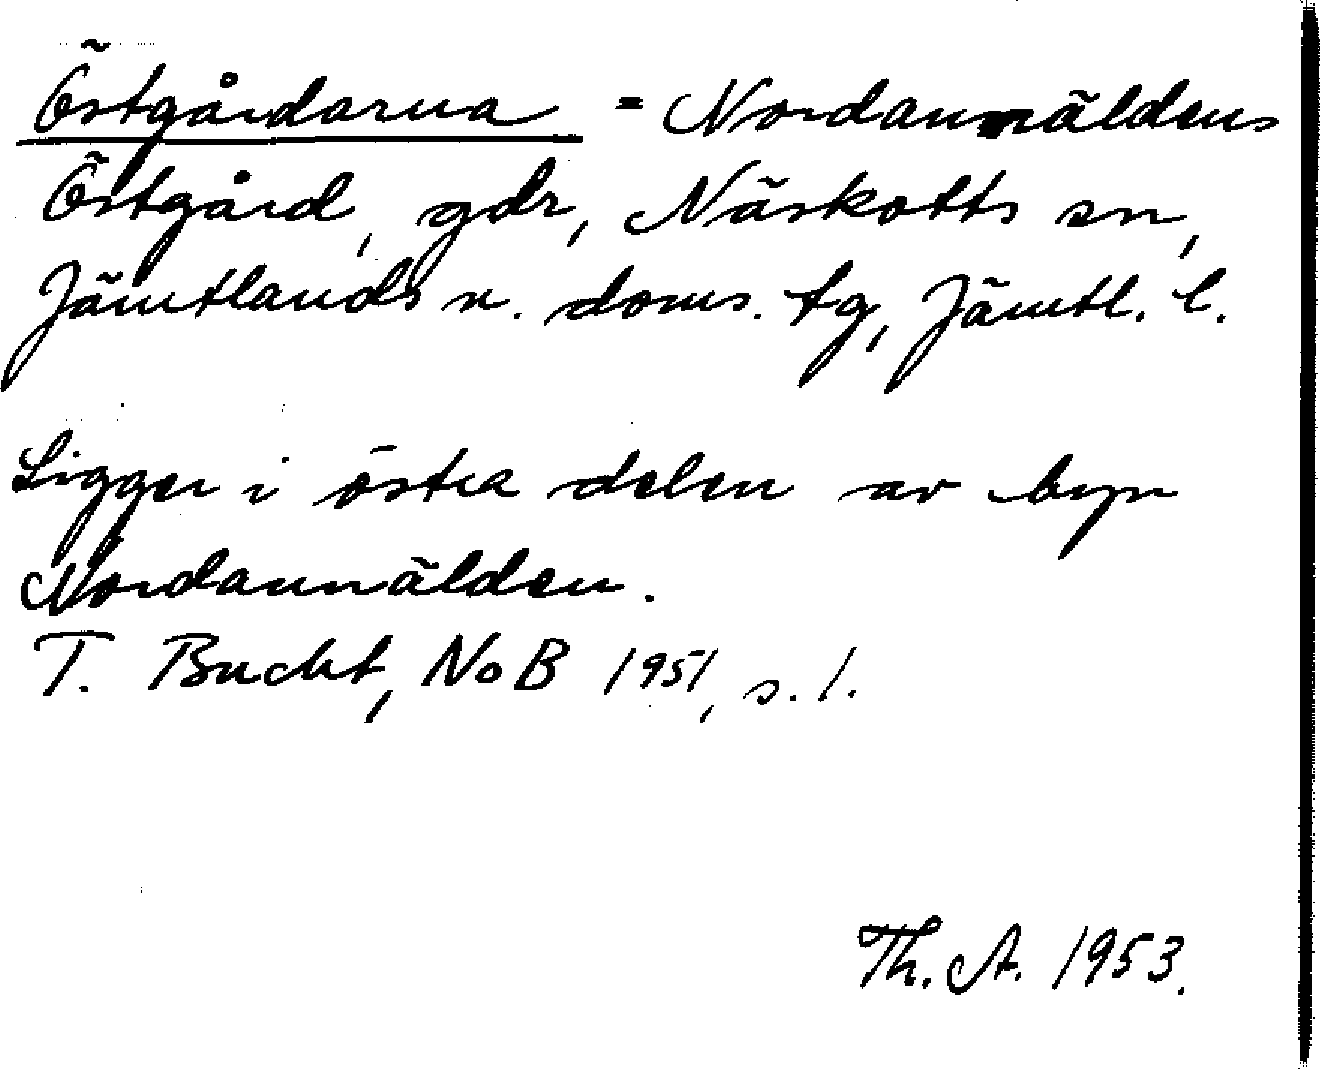 Östgårdarna = Nordannäldens
Östgård, gdr, Näskotts sn,
Jämtlands n. doms. tg, Jämtl. l.
Ligger i östra delen av byn
Nordannälden.
T. Bucht, NoB 1951, s. 1.
Th. A. 1953.